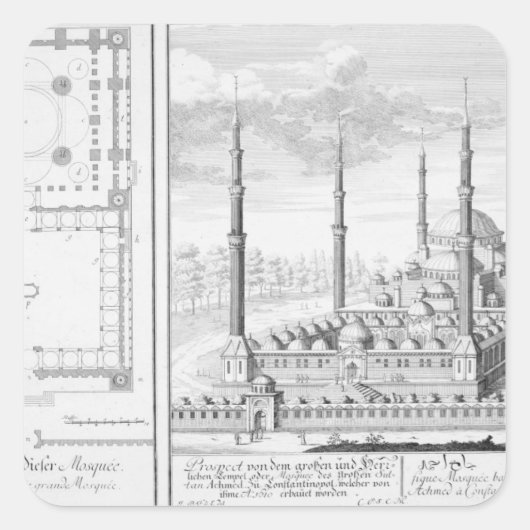 dieser Mosquée.
e grande Mosquée.
Prospect von dem großen und Herr=
lichen Tempel oder Mosquée des großen Sul=
tan Achmed. zu Constantinopol, welcher von
ihme A. 1610 erbauet worden.
fique Mosquée ba
Achmed à Consta